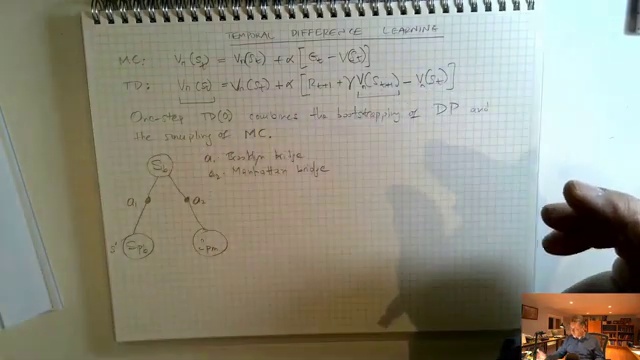 TEMPORAL DIFFERENCE LEARNING
MC: Vπ(St) = Vπ(St) + α [Gt − V(St)]
TD: Vπ(St) = Vπ(St) + α [Rt+1 + γ Vπ(St+1) − Vπ(St)]
One-step TD(0) combines the bootstrapping of DP and
the sampling of MC.
Sb
a1 Brooklyn bridge
a2. Manhattan bridge
a1 a2
s' Spb Spm